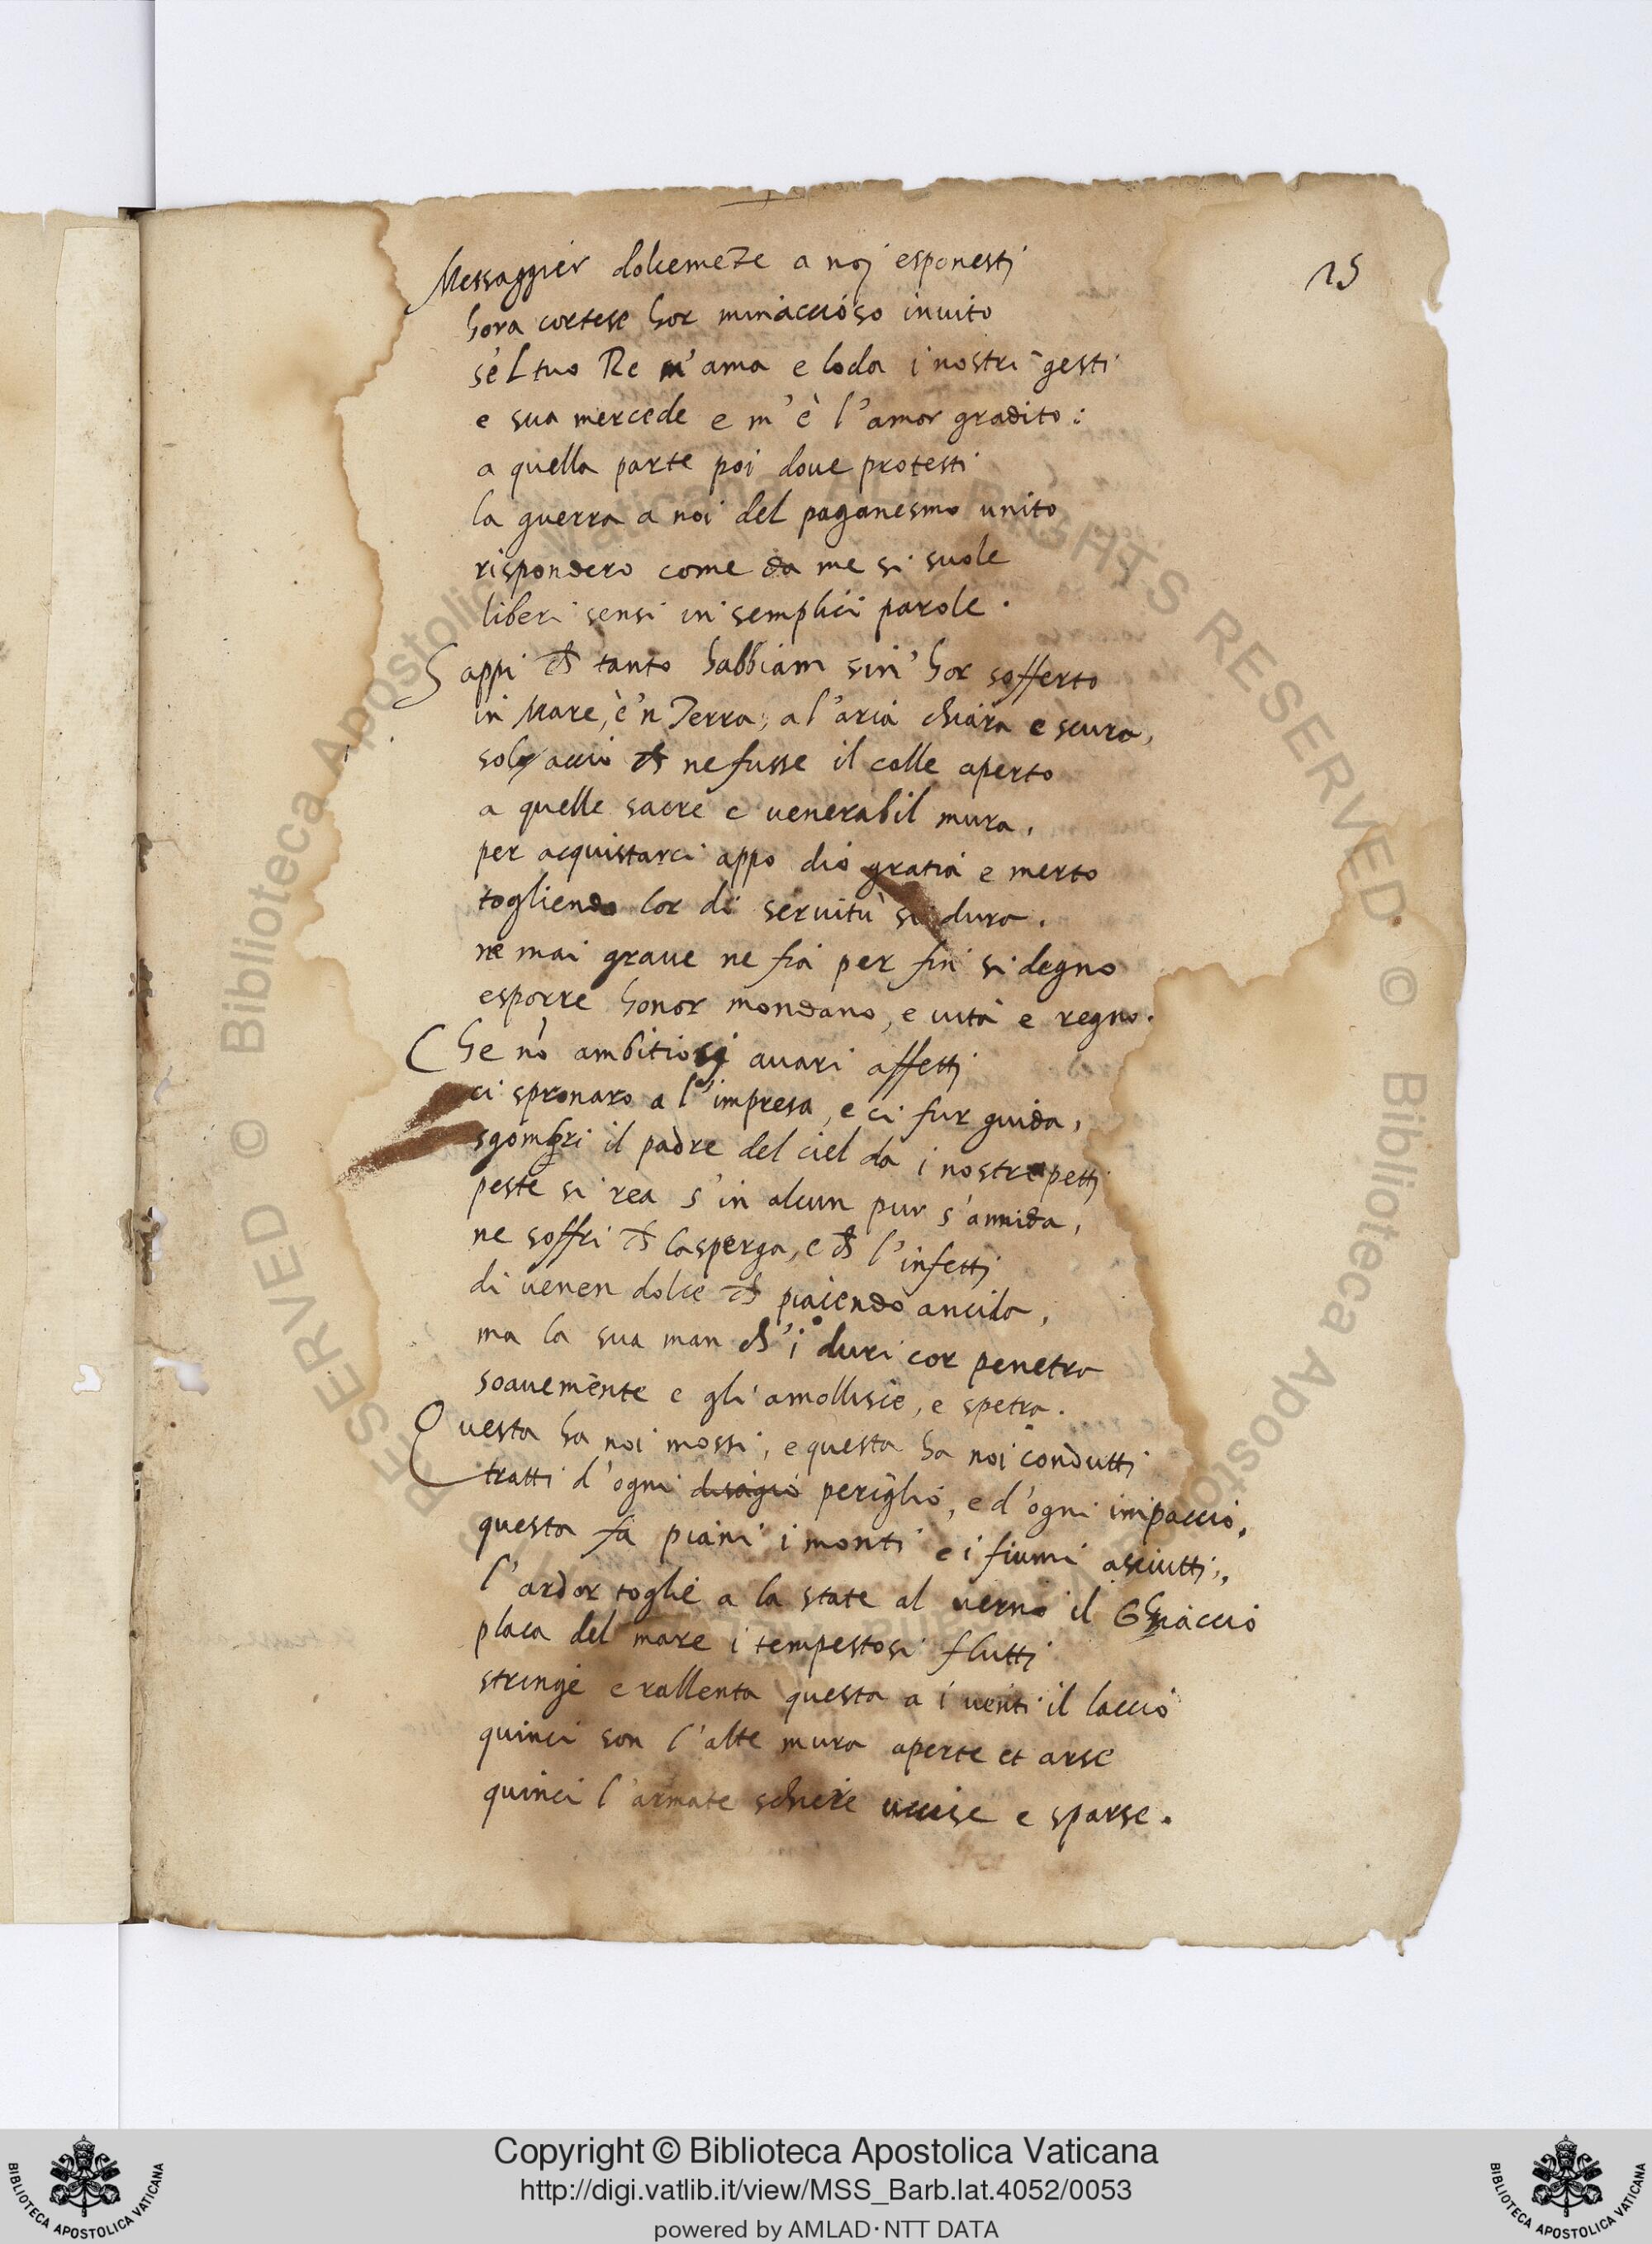 25
Messaggier dolcemẽte a noj esponesti
hora cortese hor minaccioso inuito
se'l tuo Re m'ama e loda i nostri gesti
e sua mercede e m'è l'amor gradito:
a quella parte poi doue protesti
la guerra a noi del paganesmo unito
rispondero come da me si suole
liberi sensi in semplici parole.
Sappi ch tanto habbiam sin' hor sofferto
in Mare, è'n Terra, a l'aria chiara e scura,
sol acciò ch ne fusse il calle aperto
a quelle sacre e uenerabil mura,
per acquistarci appo dio gratia e merto
togliendo lor di seruitù si dura.
ne mai graue ne fia per fin si degno
esporre honor mondano, e uita e regno.
Che nõ ambitiosj auari affetti
ci spronaro a l'impresa, e ci fur guida,
sgombri il padre del ciel da i nostre petti
peste si rea s'in alcun pur s'annida,
ne soffri ch l'asperga, e ch l'infetti
di uenen dolce ch piacendo ancida,
ma la sua man ch'i duri cor penetra
soauemente e gli amollisce, e spetra.
Questa ha noi mossi, e questa ha noi condutti
tratti d'ogni disagio periglio, e d'ogni impaccio,
questa fa piani i monti e i fiumi asciutti,
l'ardor toglie a la state al uerno il Ghiaccio
placa del mare i tempestosi flutti
stringe e rallenta questa a i uenti il laccio
quinci son l'alte mura aperte et arse
quinci l'armate schiere uccise e sparse.
© Biblioteca Apostolica Vaticana ALL RIGHTS RESERVED
Copyright © Biblioteca Apostolica Vaticana
http://digi.vatlib.it/view/MSS_Barb.lat.4052/0053
powered by AMLAD·NTT DATA
BIBLIOTECA APOSTOLICA VATICANA
BIBLIOTECA APOSTOLICA VATICANA